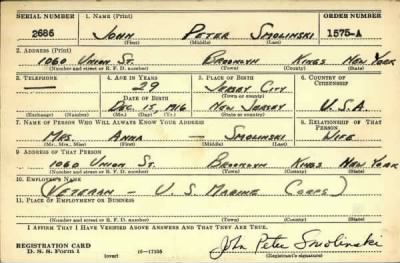 SERIAL NUMBER 1. NAME (Print) ORDER NUMBER
2686 JOHN PETER SMOLINSKI 1575-A
(First) (Middle) (Last)
2. ADDRESS (Print)
1060 UNION ST. BROOKLYN KINGS NEW YORK
(Number and street or R. F. D. number) (Town) (County) (State)
3. TELEPHONE 4. AGE IN YEARS 5. PLACE OF BIRTH 6. COUNTRY OF CITIZENSHIP
— 29 JERSEY CITY
(Town or county)
DATE OF BIRTH
DEC. 15, 1916 NEW JERSEY U.S.A.
(Exchange) (Number) (Mo.) (Day) (Yr.) (State or country)
7. NAME OF PERSON WHO WILL ALWAYS KNOW YOUR ADDRESS 8. RELATIONSHIP OF THAT PERSON
MRS. ANNA — SMOLINSKI WIFE
(Mr., Mrs., Miss) (First) (Middle) (Last)
9. ADDRESS OF THAT PERSON
1060 UNION ST. BROOKLYN KINGS NEW YORK
(Number and street or R. F. D. number) (Town) (County) (State)
10. EMPLOYER'S NAME
(VETERAN — U. S. MARINE CORPS)
11. PLACE OF EMPLOYMENT OR BUSINESS
(Number and street or R. F. D. number) (Town) (County) (State)
I AFFIRM THAT I HAVE VERIFIED ABOVE ANSWERS AND THAT THEY ARE TRUE.
REGISTRATION CARD
D. S. S. Form 1 (over) 16—17105 John Peter Smolinski
(Registrant's signature)